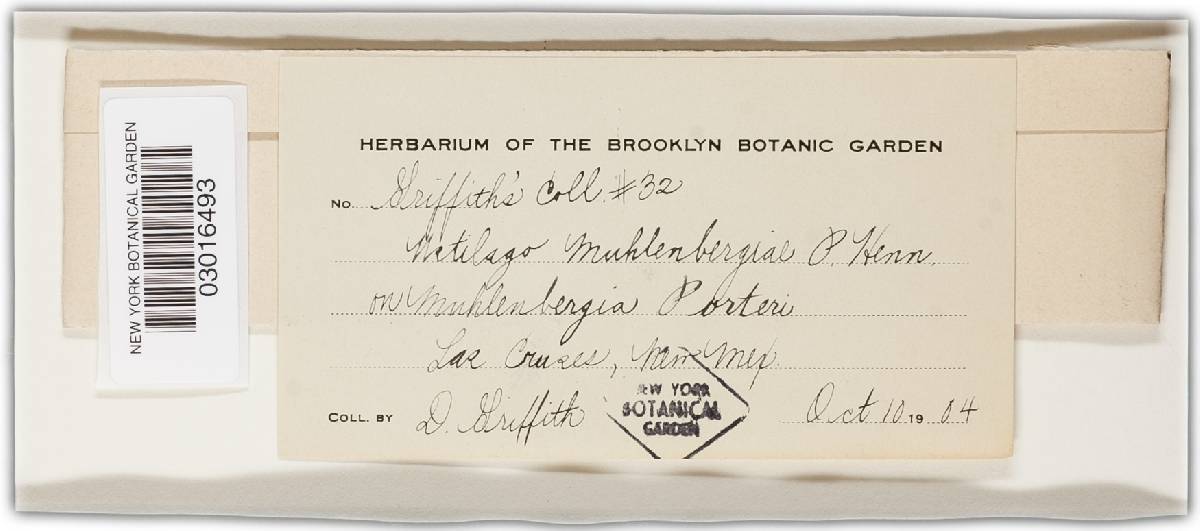 NEW YORK BOTANICAL GARDEN
03016493
HERBARIUM OF THE BROOKLYN BOTANIC GARDEN
No. Griffith's Coll. #32
Ustilago Muhlenbergiae P. Henn.
on Muhlenbergia Porteri
Las Cruses, New Mex.
COLL. BY D. Griffith Oct 10 1904
NEW YORK
BOTANICAL
GARDEN